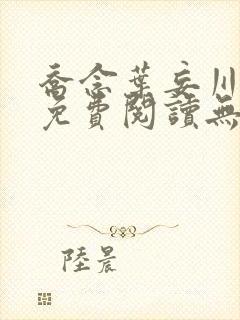 喬念葉妄川
免費閱讀無
陸晨